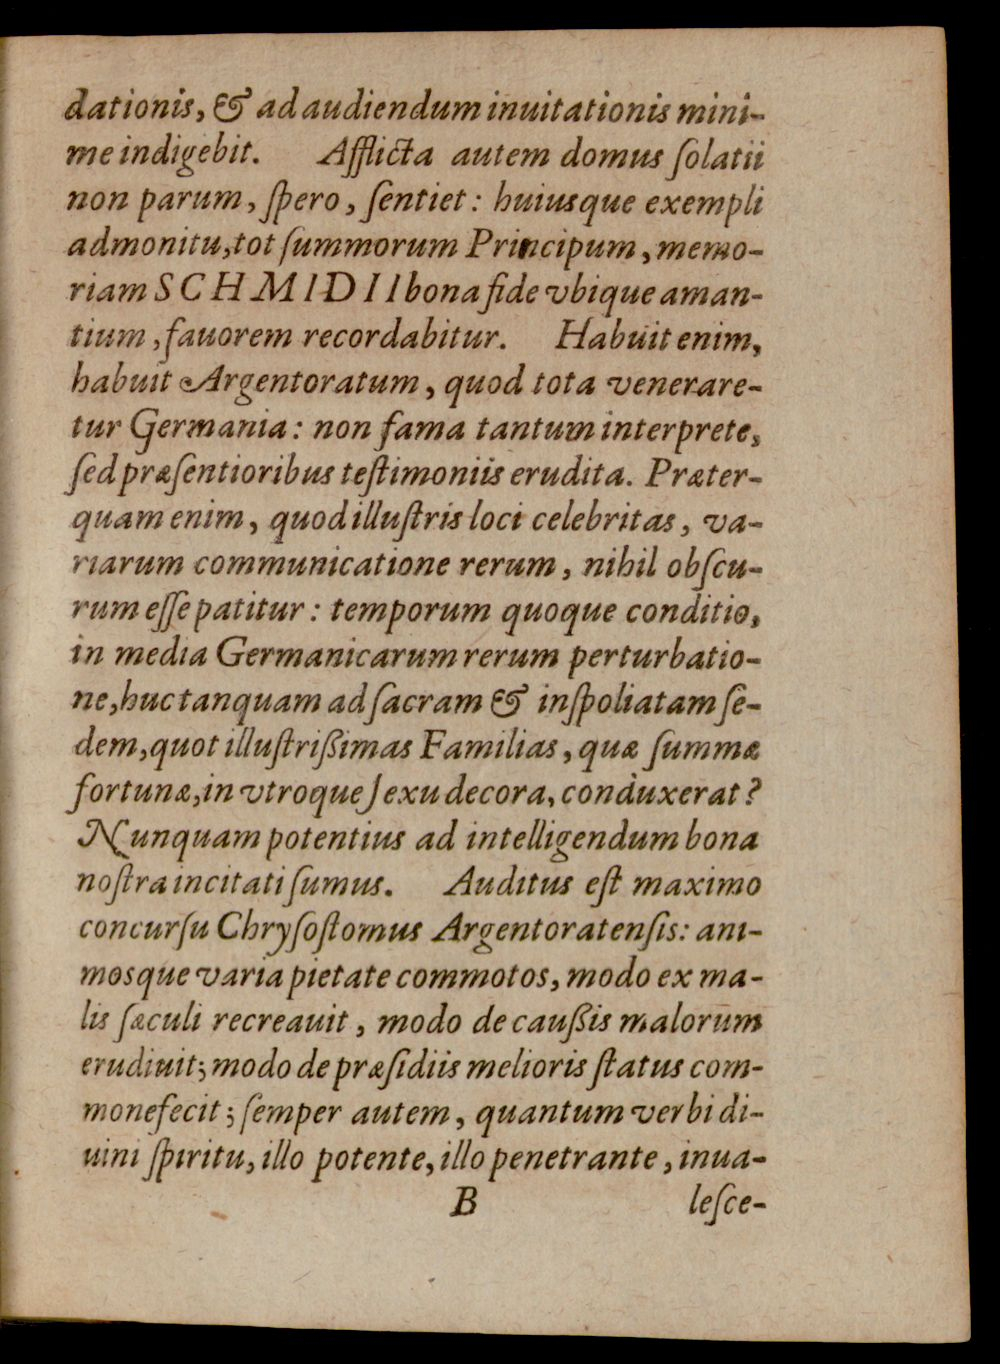 dationis, & ad audiendum inuitationis mini-
me indigebit. Afflicta autem domus ſolatii
non parum, ſpero, ſentiet: huiusque exempli
admonitu, tot ſummorum Principum, memo-
riam SCHMIDII bona fide vbique aman-
tium, fauorem recordabitur. Habuit enim,
habuit Argentoratum, quod tota venerare-
tur Germania: non fama tantum interprete,
ſed præſentioribus teſtimoniis erudita. Præter-
quam enim, quod illuſtris loci celebritas, va-
riarum communicatione rerum, nihil obſcu-
rum eſſe patitur: temporum quoque conditio,
in media Germanicarum rerum perturbatio-
ne, huc tanquam ad ſacram & inſpoliatam ſe-
dem, quot illuſtrißimas Familias, quæ ſummæ
fortunæ, in vtroque ſexu decora, conduxerat?
Nunquam potentius ad intelligendum bona
noſtra incitati ſumus. Auditus eſt maximo
concurſu Chryſoſtomus Argentoratenſis: ani-
mosque varia pietate commotos, modo ex ma-
lis ſæculi recreauit, modo de caußis malorum
erudiuit; modo de præſidiis melioris ſtatus com-
monefecit; ſemper autem, quantum verbi di-
uini ſpiritu, illo potente, illo penetrante, inua-
B leſce-